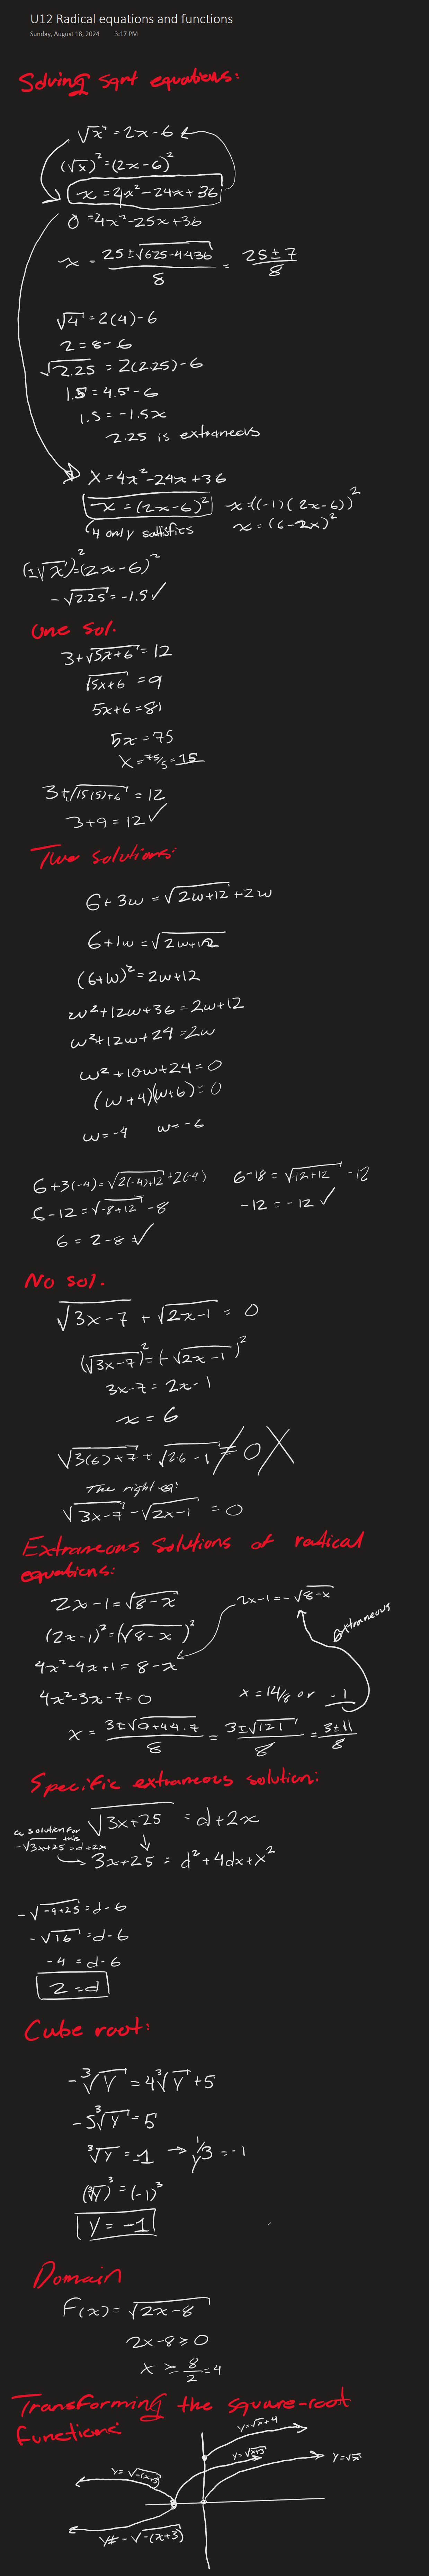 U12 Radical equations and functions
Sunday, August 18, 2024 3:17 PM
Solving sqrt equations:
√x = 2x-6
(√x)² = (2x-6)²
x = 4x²-24x+36
0 = 4x²-25x+36
x = (25±√(625-4·4·36))/8 = (25±7)/8
√4 = 2(4)-6
2 = 8-6
√2.25 = 2(2.25)-6
1.5 = 4.5-6
1.5 = -1.5x
2.25 is extraneous
X = 4x²-24x+36
x = (2x-6)² x = ((-1)(2x-6))²
4 only satisfies x = (6-2x)²
(±√x)² = (2x-6)²
-√2.25 = -1.5 ✓
One sol.
3+√(5x+6) = 12
√(5x+6) = 9
5x+6 = 81
5x = 75
x = 75/5 = 15
3+√(15(5)+6) = 12
3+9 = 12 ✓
Two solutions:
6+3w = √(2w+12) + 2w
6+1w = √(2w+12)
(6+w)² = 2w+12
w²+12w+36 = 2w+12
w²+12w+24 = 2w
w²+10w+24 = 0
(w+4)(w+6) = 0
w = -4 w = -6
6+3(-4) = √(2(-4)+12) + 2(-4) 6-18 = √(-12+12) -12
6-12 = √(-8+12) -8 -12 = -12 ✓
6 = 2-8 ✓
No sol.
√(3x-7) + √(2x-1) = 0
(√(3x-7))² = (-√(2x-1))²
3x-7 = 2x-1
x = 6
√(3(6)+7) + √(2·6-1) ≠ 0 X
The right eq:
√(3x-7) - √(2x-1) = 0
Extraneous solutions of radical
equations:
2x-1 = √(8-x) 2x-1 = -√(8-x)
(2x-1)² = (√(8-x))² extraneous
4x²-4x+1 = 8-x
4x²-3x-7 = 0 x = 14/8 or -1
x = (3±√(9+4·4·7))/8 = (3±√121)/8 = (3±11)/8
Specific extraneous solution:
√(3x+25) = d+2x
a solution for this
-√(3x+25) = d+2x
3x+25 = d²+4dx+x²
-√(-9+25) = d-6
-√16 = d-6
-4 = d-6
2 = d
Cube root:
-∛y = 4∛y + 5
-5∛y = 5
∛y = -1 → y^1/3 = -1
(∛y)³ = (-1)³
y = -1
Domain
F(x) = √(2x-8)
2x-8 ≥ 0
x ≥ 8/2 = 4
Transforming the square-root
functions:
y=√x+4
y=√(x+3)
y=√x
y=√(-(x+3))
y=-√(-(x+3))